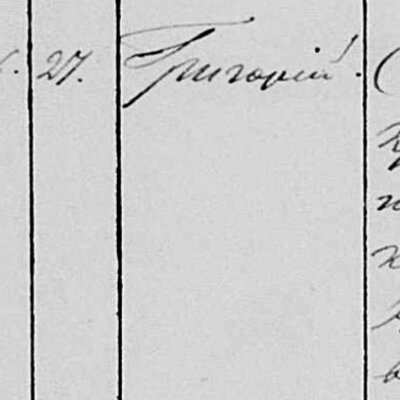 27. Григорій.